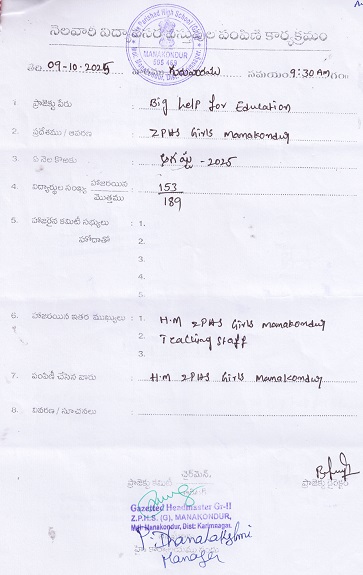 నెలవారి విద్యా పంపిణీ కార్యక్రమం
Zilla Parishad High School
MANAKONDUR
505 469
తేది 09-10-2025 గురువారము సమయం 9:30 AM గం.
1. ప్రాజెక్టు పేరు : Big help for Education
2. ప్రదేశము / ఆవరణ : ZPHS Girls Manakondur
3. ఏ నెల కొరకు : ఆగష్టు - 2025
4. విద్యార్థుల సంఖ్య హాజరయిన : 153
మొత్తము 189
5. హాజరైన కమిటీ సభ్యులు : 1.
హోదాతో 2.
3.
4.
5.
6. హాజరయిన ఇతర ముఖ్యులు : 1. H.M ZPHS Girls Manakondur
2. Teaching staff
3.
7. పంపిణీ చేసిన వారు : H.M ZPHS Girls Manakondur
8. వివరణ / సూచనలు :
ఛైర్మెన్,
ప్రాజెక్టు కమిటీ
ప్రాజెక్టు డైరెక్టర్
Gazetted Headmaster Gr-II
Z.P.H.S. (G), MANAKONDUR,
Mdl: Manakondur, Dist: Karimnagar.
P. Dhanalakshmi
Manager